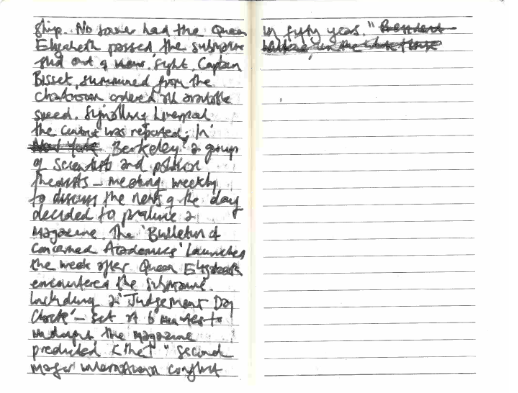 ship. No sooner had the Queen
Elizabeth passed the submarine
slid out of view. Sight. Captain
Bisset, summoned from the
chartroom ordered all available
speed. Signalling Liverpool
the contact was reported. In
New York Berkeley a group
of scientists and political
theorists – meeting weekly
to discuss the news of the day
decided to produce a
magazine. The 'Bulletin of
Concerned Academics' launched
the week after Queen Elizabeth
encountered the submarine.
Including a 'Judgement Day
Clock' – set at 6 minutes to
midnight the magazine
predicted that "second
major international conflict
in fifty years." President
in the White House